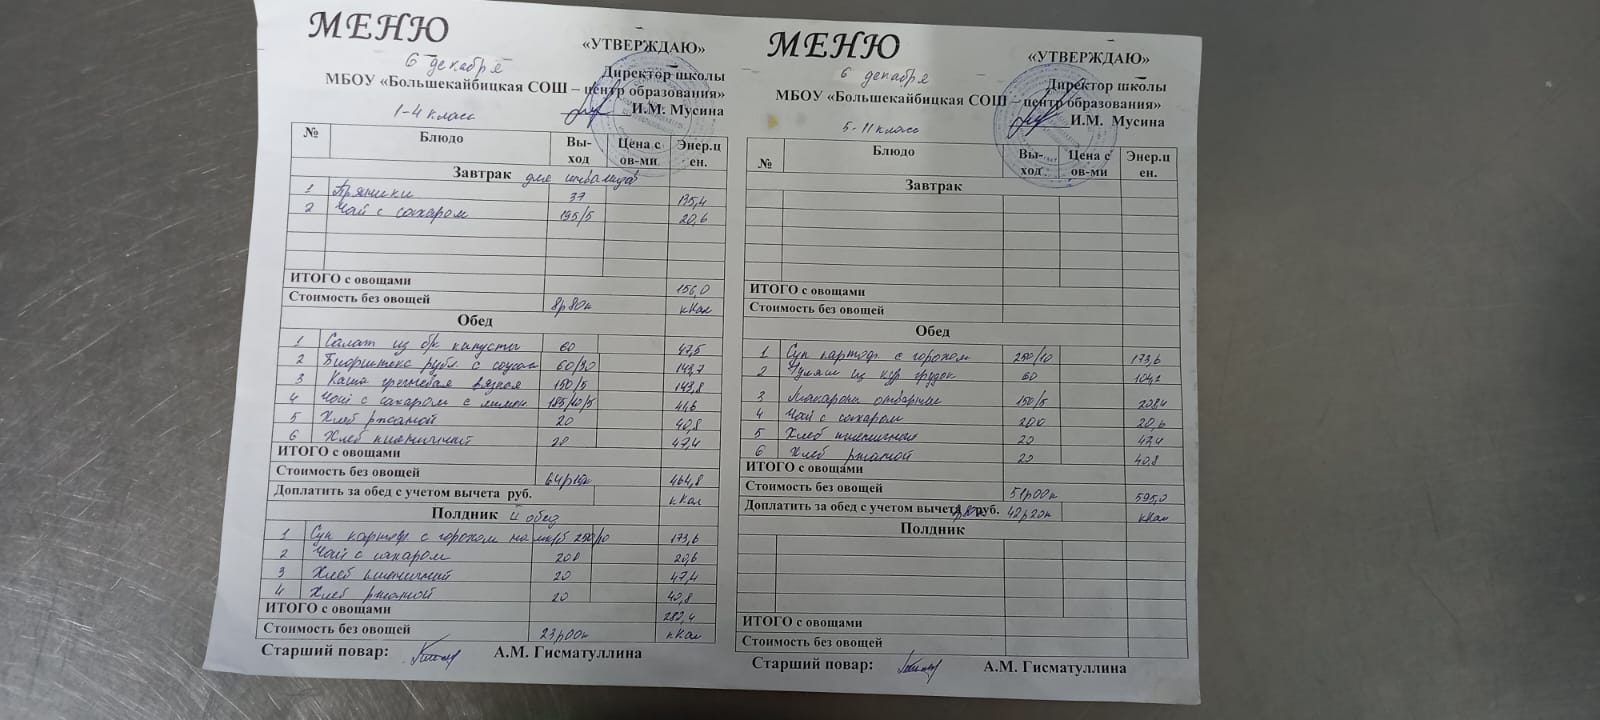 МЕНЮ
6 декабря
«УТВЕРЖДАЮ»
Директор школы
МБОУ «Большекайбицкая СОШ – центр образования»
И.М. Мусина
1-4 класс
№ Блюдо Вы-ход Цена с ов-ми Энер.ц ен.
Завтрак для
1 Пряники 37 135,4
2 Чай с сахаром 195/5 20,6
ИТОГО с овощами 156,0
Стоимость без овощей 8р80к кКал
Обед
1 Салат из бк. капусты 60 47,5
2 Бифштекс рубл. с соусом 60/30 143,7
3 Каша гречневая вязкая 150/5 143,8
4 Чай с сахаром с лимон 185/10/5 41,6
5 Хлеб ржаной 20 40,8
6 Хлеб пшеничный 20 47,4
ИТОГО с овощами
Стоимость без овощей 464,8
Доплатить за обед с учетом вычета руб. кКал
Полдник II обед
1 Суп картоф с горохом на мк/б 250/10 173,6
2 Чай с сахаром 200 20,6
3 Хлеб пшеничный 20 47,4
4 Хлеб ржаной 20 40,8
ИТОГО с овощами 282,4
Стоимость без овощей 23р00к кКал
Старший повар: А.М. Гисматуллина
МЕНЮ
6 декабря
«УТВЕРЖДАЮ»
Директор школы
МБОУ «Большекайбицкая СОШ – центр образования»
И.М. Мусина
5-11 класс
№ Блюдо Вы-ход Цена с ов-ми Энер.ц ен.
Завтрак
ИТОГО с овощами
Стоимость без овощей
Обед
1 Суп картоф с горохом 250/10 173,6
2 Гуляш из кур грудок 60 104,2
3 Макароны отварные 150/5 208,4
4 Чай с сахаром 200 20,6
5 Хлеб пшеничный 20 47,4
6 Хлеб ржаной 20 40,8
ИТОГО с овощами
Стоимость без овощей 51р00к 595,0
Доплатить за обед с учетом вычета руб. 42р20к кКал
Полдник
ИТОГО с овощами
Стоимость без овощей
Старший повар: А.М. Гисматуллина